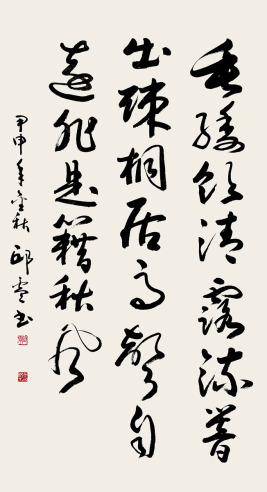 垂緌飲清露流響
出疎桐居高聲自
遠非是籍秋風
甲申年金秋 邱 书